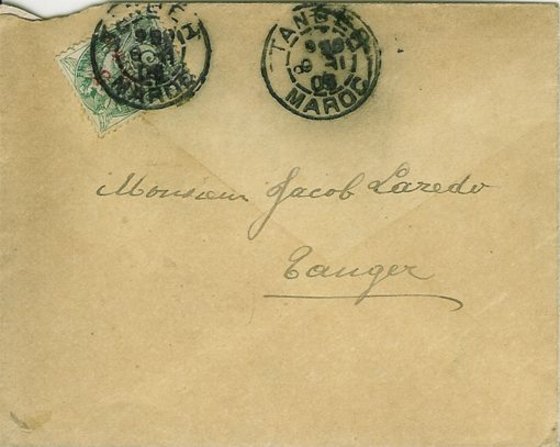 TANGER
MAROC
TANGER
MAROC
Monsieur Jacob Laredo
Tanger